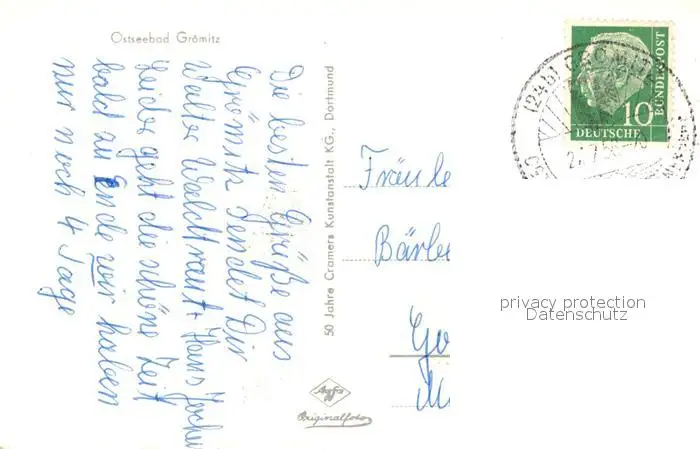 Ostseebad Grömitz
Die besten Grüße aus
Grömitz sendet Dir
Walter Waldtraut + Hans Jochen
Leider geht die schöne Zeit
bald zu Ende wir haben
nur noch 4 Tage
50 Jahre Cramers Kunstanstalt KG., Dortmund
Fräule
Bärbe
Go
M
Agfa
Originalfoto
10
DEUTSCHE
BUNDESPOST
(24b) GRÖMITZ
privacy protection
Datenschutz